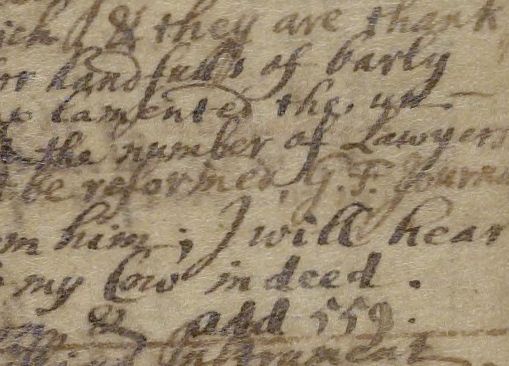 ich / & they are thank
or handfulls of barly
lamented the un-
the number of Lawyers
be reformed, G. F. Journa
om him; I will hear
my Cow indeed.
& add 559.
Instrument